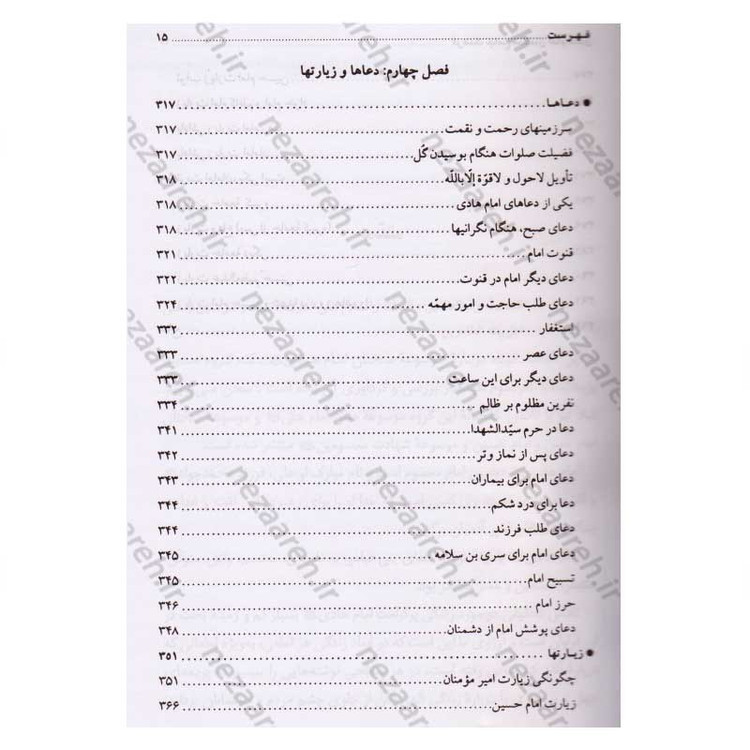 فهرست ........ ۱۵
فصل چهارم: دعاها و زیارتها
● دعاها ........ ۳۱۷
سرزمینهای رحمت و نقمت ........ ۳۱۷
فضیلت صلوات هنگام بوسیدن گُل ........ ۳۱۷
تأویل لاحول و لاقوّة إلّا بالله ........ ۳۱۸
یکی از دعاهای امام هادی ........ ۳۱۸
دعای صبح، هنگام نگرانیها ........ ۳۱۸
قنوت امام ........ ۳۲۱
دعای دیگر امام در قنوت ........ ۳۲۲
دعای طلب حاجت و امور مهمّه ........ ۳۲۴
استغفار ........ ۳۳۲
دعای عصر ........ ۳۳۳
دعای دیگر برای این ساعت ........ ۳۳۳
نفرین مظلوم بر ظالم ........ ۳۳۴
دعا در حرم سیّدالشهدا ........ ۳۴۱
دعای پس از نماز وتر ........ ۳۴۲
دعای امام برای بیماران ........ ۳۴۳
دعا برای درد شکم ........ ۳۴۴
دعای طلب فرزند ........ ۳۴۴
دعای امام برای سری بن سلامه ........ ۳۴۵
تسبیح امام ........ ۳۴۵
حرز امام ........ ۳۴۶
دعای پوشش امام از دشمنان ........ ۳۴۸
● زیارتها ........ ۳۵۱
چگونگی زیارت امیر مؤمنان ........ ۳۵۱
زیارت امام حسین ........ ۳۶۶
nezaareh.ir